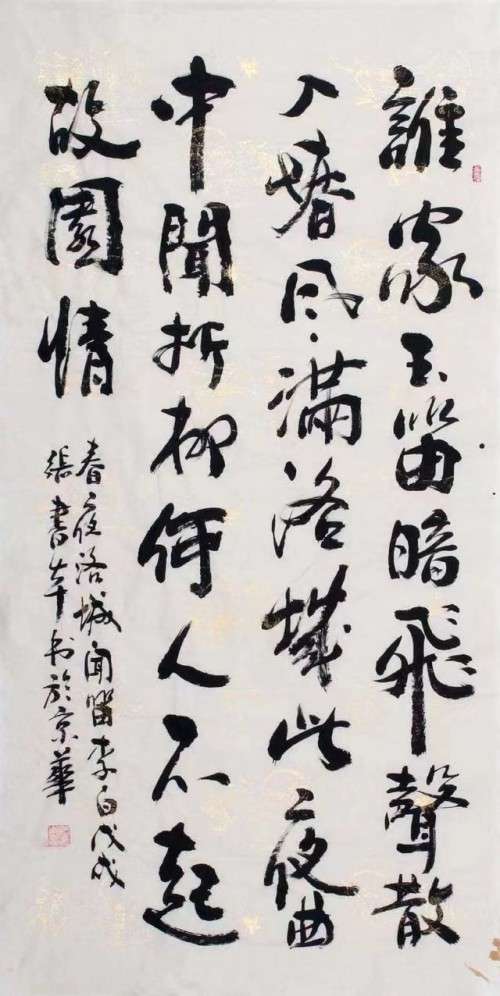 誰家玉笛暗飛聲散
入春风滿洛城此夜曲
中聞折柳何人不起
故園情
春夜洛城闻笛李白戊戌
張書书於京華